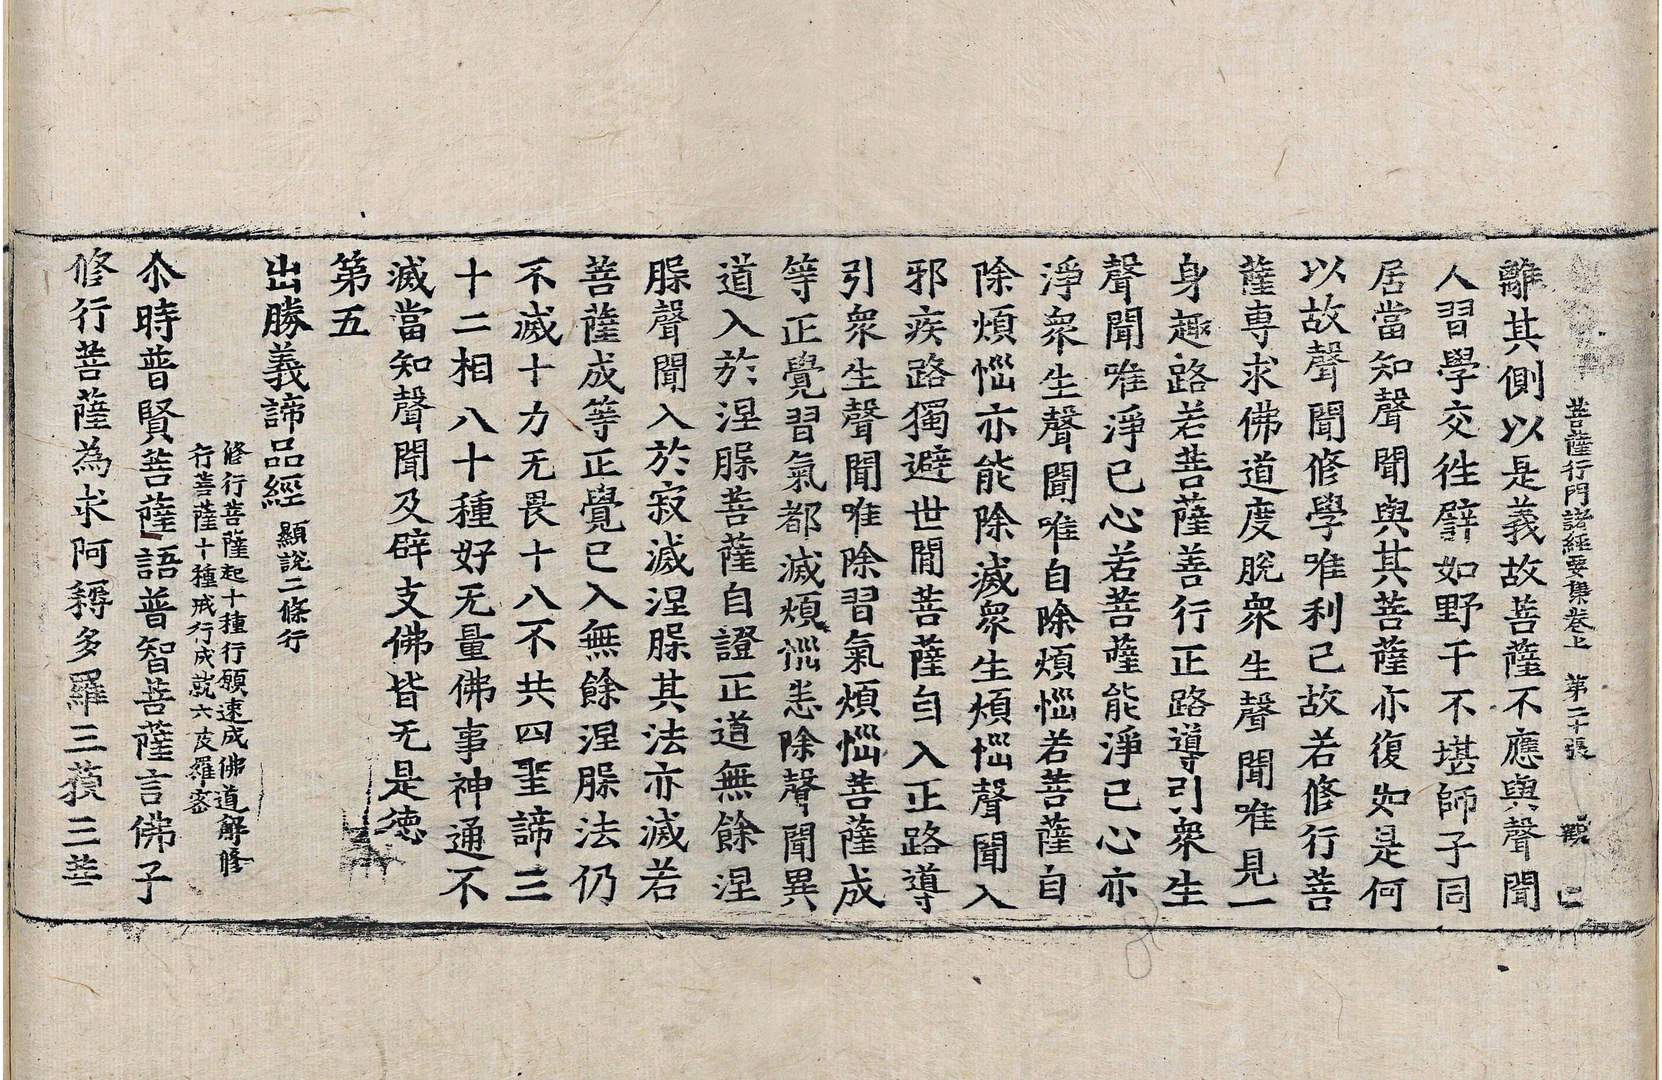 菩薩行門諸經要集卷上　第二十張　
離其側以是義故菩薩不應與聲聞
人習學交徃譬如野干不堪師子同
居當知聲聞與其菩薩亦復如是何
以故聲聞修學唯利己故若修行菩
薩専求佛道度脫衆生聲聞唯見一
身趣路若菩薩善行正路導引衆生
聲聞唯淨己心若菩薩能淨己心亦
淨衆生聲聞唯自除煩惱若菩薩自
除煩惱亦能除滅衆生煩惱聲聞入
邪疾路獨避世間菩薩自入正路導
引衆生聲聞唯除習氣煩惱菩薩成
等正覺習氣都滅煩惱悉除聲聞異
道入於涅槃菩薩自證正道無餘涅
槃聲聞入於寂滅涅槃其法亦滅若
菩薩成等正覺已入無餘涅槃法仍
不滅十力无畏十八不共四聖諦三
十二相八十種好无量佛事神通不
滅當知聲聞及辟支佛皆无是徳
第五
出勝義諦品經 顯說二條行
修行菩薩起十種行願速成佛道解修
行菩薩十種戒行成就六波羅蜜
尒時普賢菩薩語普智菩薩言佛子
修行菩薩為求阿耨多羅三藐三菩